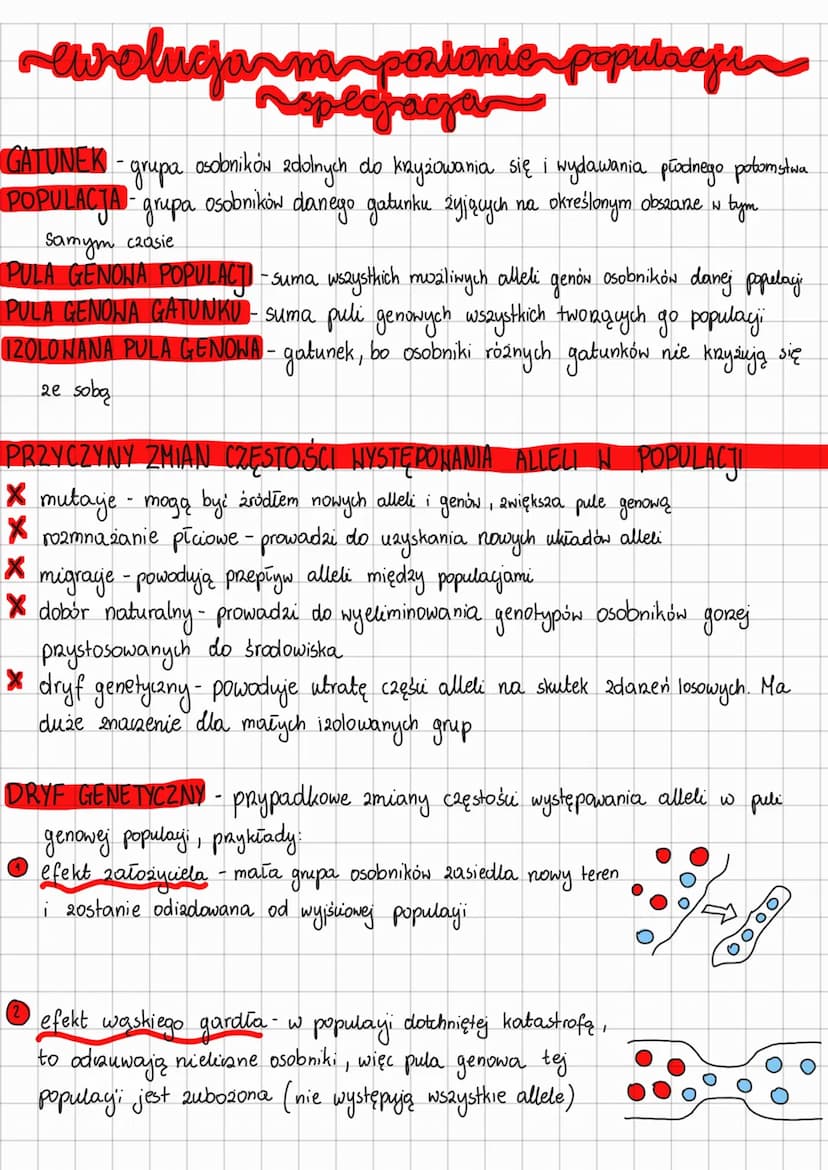 ewolucja na poziomie populacji
specjacja
GATUNEK - grupa osobników zdolnych do krzyżowania się i wydawania płodnego potomstwa
POPULACJA - grupa osobników danego gatunku żyjących na określonym obszarze w tym
samym czasie
PULA GENOWA POPULACJI - suma wszystkich możliwych alleli genów osobników danej populacji
PULA GENOWA GATUNKU - suma puli genowych wszystkich tworzących go populacji
IZOLOWANA PULA GENOWA - gatunek, bo osobniki różnych gatunków nie krzyżują się
ze sobą
PRZYCZYNY ZMIAN CZĘSTOŚCI WYSTĘPOWANIA ALLELI W POPULACJI
X mutacje - mogą być źródłem nowych alleli i genów, zwiększa pule genową
X rozmnażanie płciowe - prowadzi do uzyskania nowych układów alleli
X migracje - powodują przepływ alleli między populacjami
X dobór naturalny - prowadzi do wyeliminowania genotypów osobników gorzej
przystosowanych do środowiska
X dryf genetyczny - powoduje utratę części alleli na skutek zdarzeń losowych. Ma
duże znaczenie dla małych izolowanych grup
DRYF GENETYCZNY - przypadkowe zmiany częstości występowania alleli w puli
genowej populacji, przykłady:
1 efekt założyciela - mała grupa osobników zasiedla nowy teren
i zostanie odizolowana od wyjściowej populacji
2 efekt wąskiego gardła - w populacji dotchniętej katastrofą,
to odczuwają nieliczne osobniki, więc pula genowa tej
populacji jest zubożona (nie występują wszystkie allele)